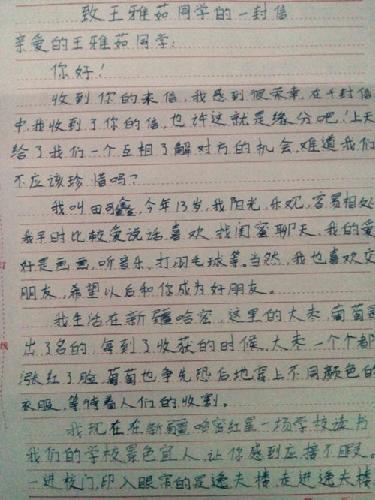 致王雅茹同学的一封信
亲爱的王雅茹同学:
你好!
收到你的来信,我感到很荣幸,在千封信
中,我收到了你的信,也许这就是缘分吧!上天
给了我们一个互相了解对方的机会,难道我们
不应该珍惜吗?
我叫田鑫,今年13岁,我阳光,乐观,容易相处
我平时比较爱说话,喜欢找闺蜜聊天,我的爱
好是画画,听音乐,打羽毛球等。当然,我也喜欢交
朋友,希望以后和你成为好朋友。
我生活在新疆哈密,这里的大枣,葡萄是
出了名的,每到了收获的时候,大枣一个个都
涨红了脸,葡萄也争先恐后地穿上不同颜色的
衣服,等待着人们的收割。
我现在在新疆哈密红星一场学校读书
我们的学校景色宜人,让你感到应接不暇。
一进校门,印入眼帘的是逸夫楼,走进逸夫楼,